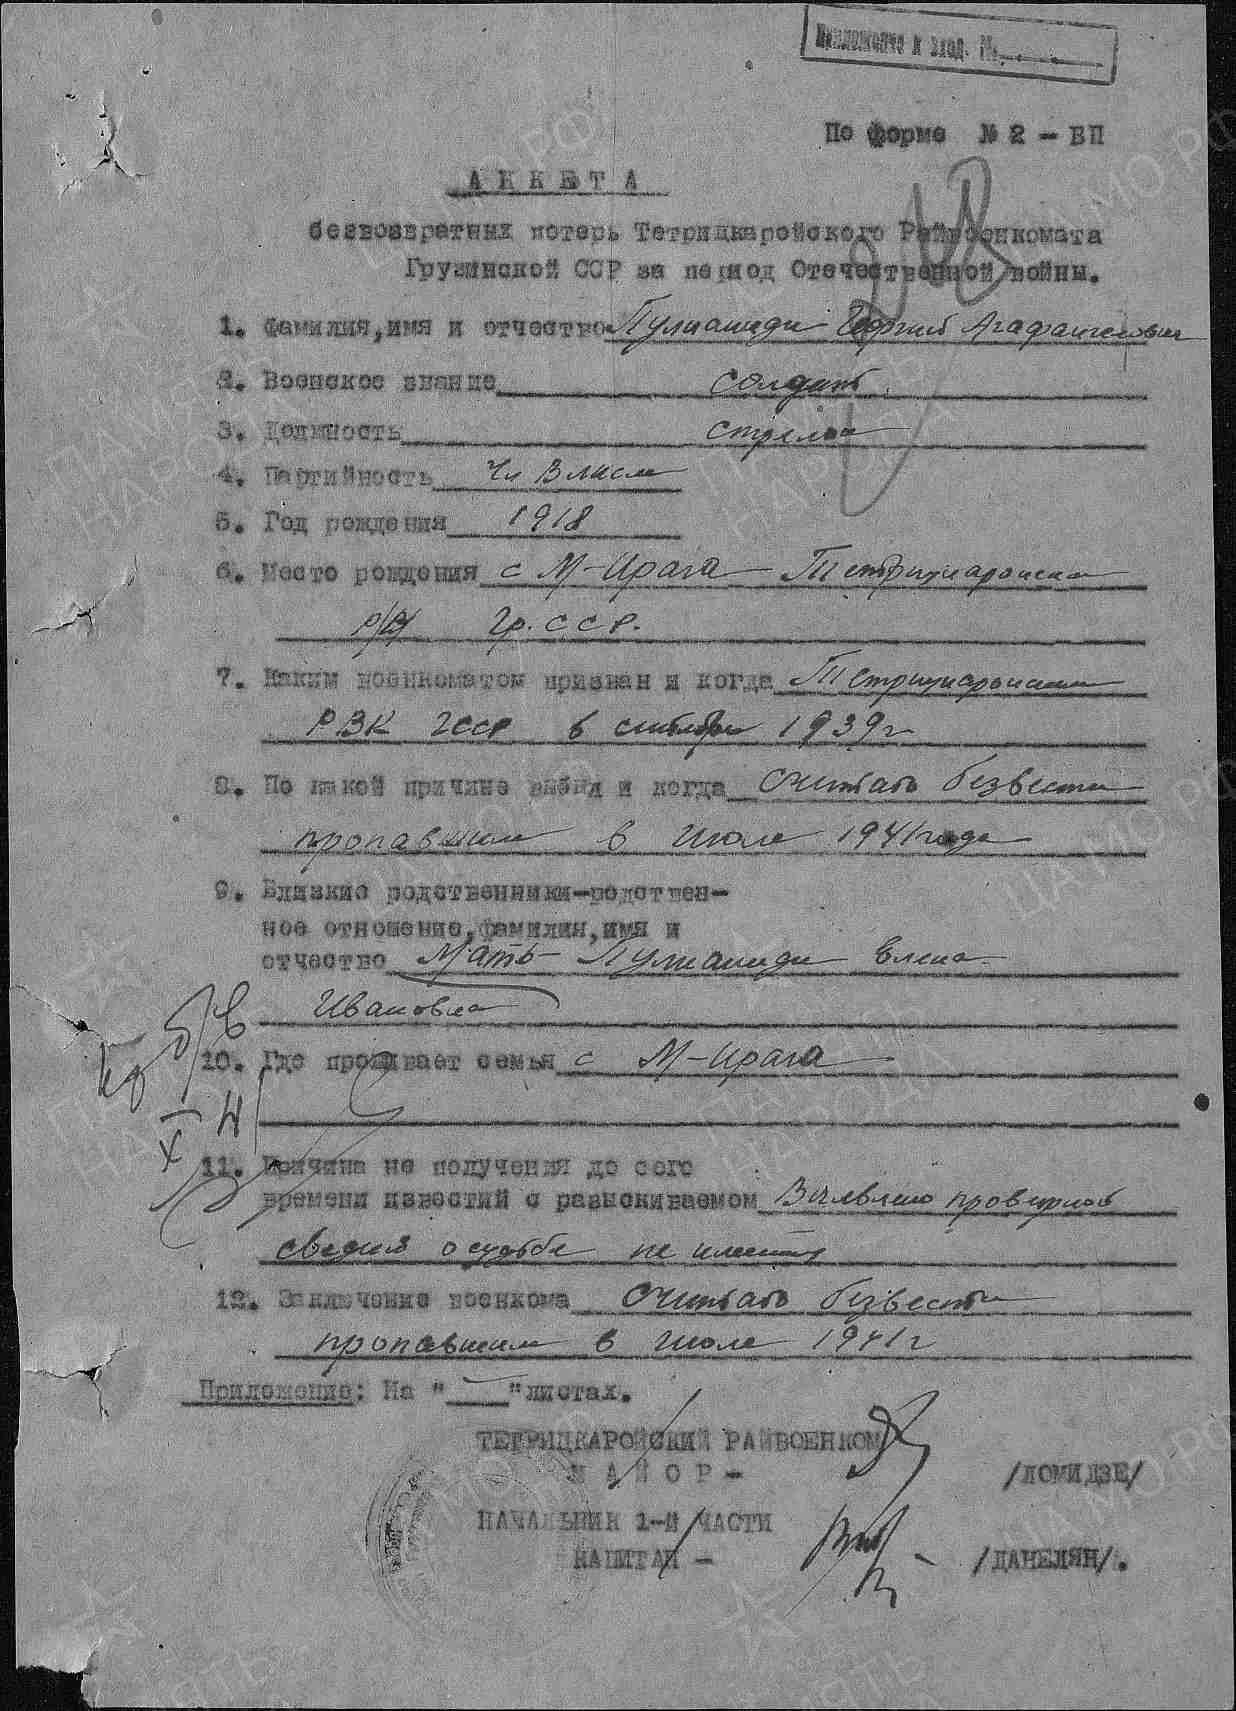 Приложение к вход. №
По форме № 2 - БП
АНКЕТА
безвозвратных потерь Тетрицкаройского Райвоенкомата
Грузинской ССР за период Отечественной войны.
1. Фамилия, имя и отчество Пулианиди Георгий Агафангелович
2. Военское звание солдат
3. Должность стрелок
4. Партийность Чл ВЛКСМ
5. Год рождения 1918
6. Место рождения с М-Ирага Тетрицкаройский
р/н Гр. ССР.
7. Каким военкоматом призван и когда Тетрицкаройским
РВК ГССР в 1939 г
8. По какой причине выбыл и когда Считать безвести
пропавшим в июле 1941 года
9. Близкие родственники-родствен-
ное отношение, фамилия, имя и
отчество Мать - Пулианиди Елена
Ивановна
б/в
10. Где проживает семья с М-Ирага
X 41
11. Причина не получения до сего
времени известий о разыскиваемом проверкой
сведения о судьбе не имеются
12. Заключение военкома Считать безвести
пропавшим в июле 1941 г
Приложение: На " — " листах.
ТЕТРИЦКАРОЙСКИЙ РАЙВОЕНКОМ
МАЙОР - /ЛОМИДЗЕ/
НАЧАЛЬНИК 1-Й ЧАСТИ
КАПИТАН - /ДАНЕЛЯН/.